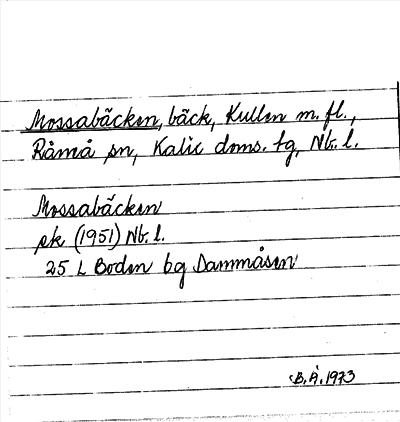 Mossabäcken, bäck, Kullen m. fl.,
Råneå sn, Kalix doms. tg, Nb. l.
Mossabäcken
ek (1951) Nb. l.
25 L Boden bg Dammåsen
B. Å. 1973